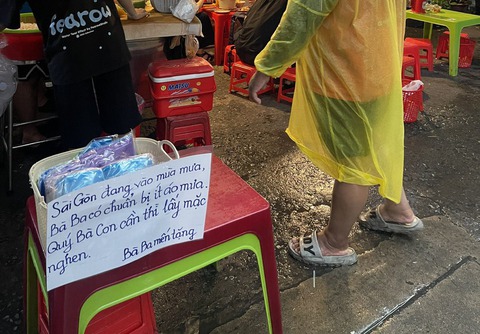 fearow
MATSU
Sài Gòn đang vào mùa mưa,
Bà Ba có chuẩn bị ít áo mưa.
Quý Bà Con cần thì lấy mặc
nghen.
Bà Ba mến tặng.